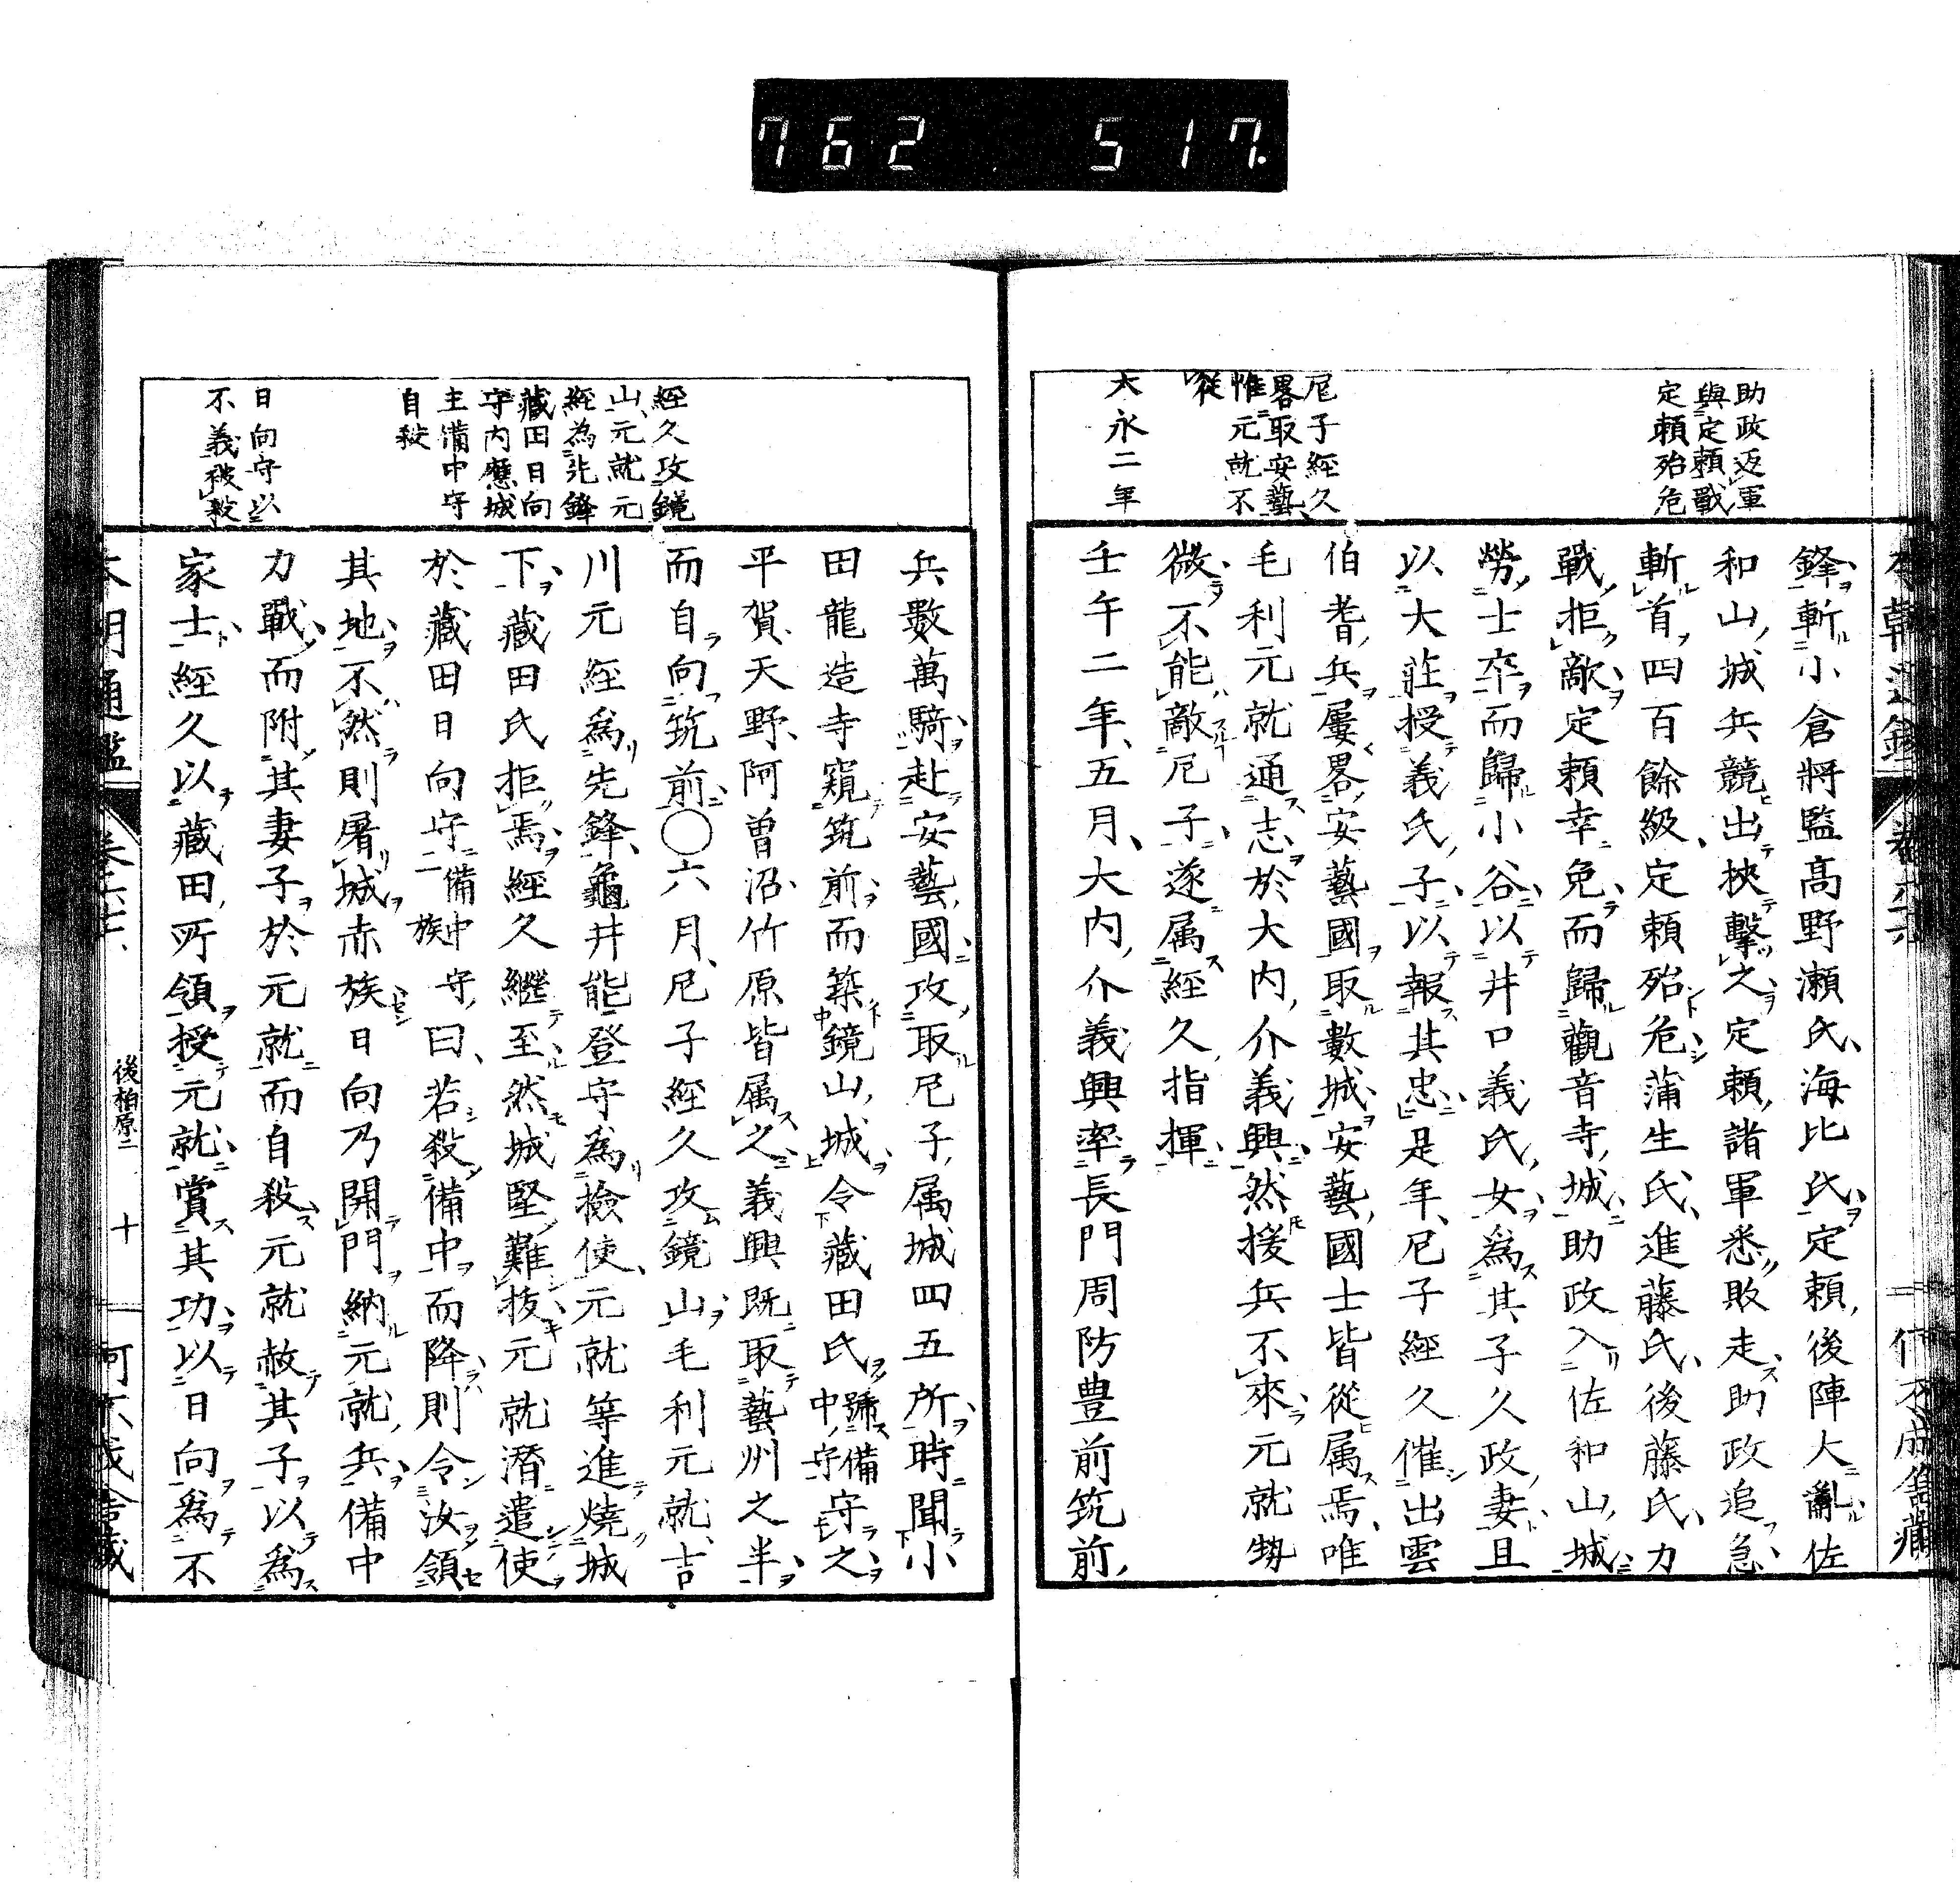 762 517.
助政返軍
與定頼戰
定頼殆危
尼子經久
畧取安藝
惟元就不
從
大永二年
鋒斬小倉將監髙野瀬氏海比氏定頼後陣大亂佐
和山城兵競出挾擊之定頼諸軍悉敗走助政追急
斬首四百餘級定頼殆危蒲生氏進藤氏後藤氏力
戰拒敵定頼幸免而歸觀音寺城助政入佐和山城
勞士卒而歸小谷以井口義氏女爲其子久政妻且
以大莊授義氏子以報其忠是年尼子經久催出雲
伯耆兵屢畧安藝國取數城安藝國士皆從属焉唯
毛利元就通志於大内介義興然援兵不來元就勢
微不能敵尼子遂属經久指揮
壬午二年五月大内介義興率長門周防豊前筑前
經久攻鏡
山元就元
經為先鋒
藏田日向
守内應城
主備中守
自殺
日向守以
不義被殺
兵數萬騎赴安藝國攻取尼子属城四五所時聞小
田龍造寺窺筑前而築鏡山城令藏田氏號備中守守之
平賀天野阿曽沼竹原皆属之義興既取藝州之半
而自向筑前○六月尼子經久攻鏡山毛利元就吉
川元經爲先鋒龜井能登守爲檢使元就等進燒城
下藏田氏拒焉經久繼至然城堅難拔元就潛遣使
於藏田日向守備中守族曰若殺備中而降則令汝領
其地不然則屠城赤族日向乃開門納元就兵備中
力戰而附其妻子於元就而自殺元就赦其子以爲
家士經久以藏田所領授元就賞其功以日向爲不
後柏原二
十